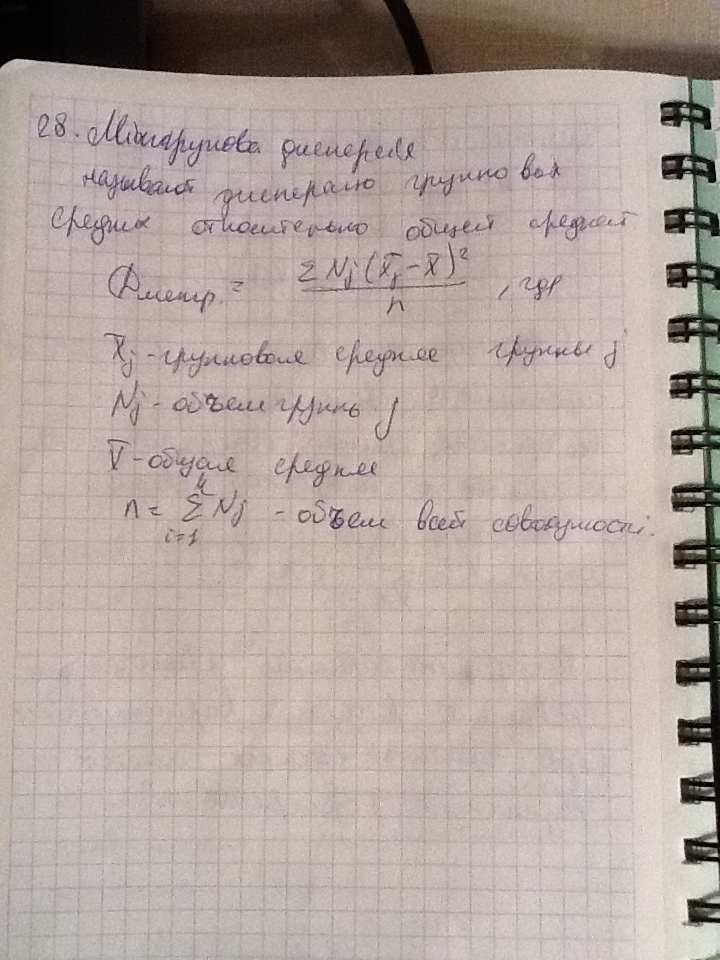 28. Межгрупова дисперсия
називают дисперсию групповых
средних относительно общей средней
Dмежгр. = Σ Nj (x̄j - x̄)² / n , где
x̄j - групповая среднее группы j
Nj - объем группы j
x̄ - общая среднее
n = Σ Nj - объем всей совокупности.
k
i=1